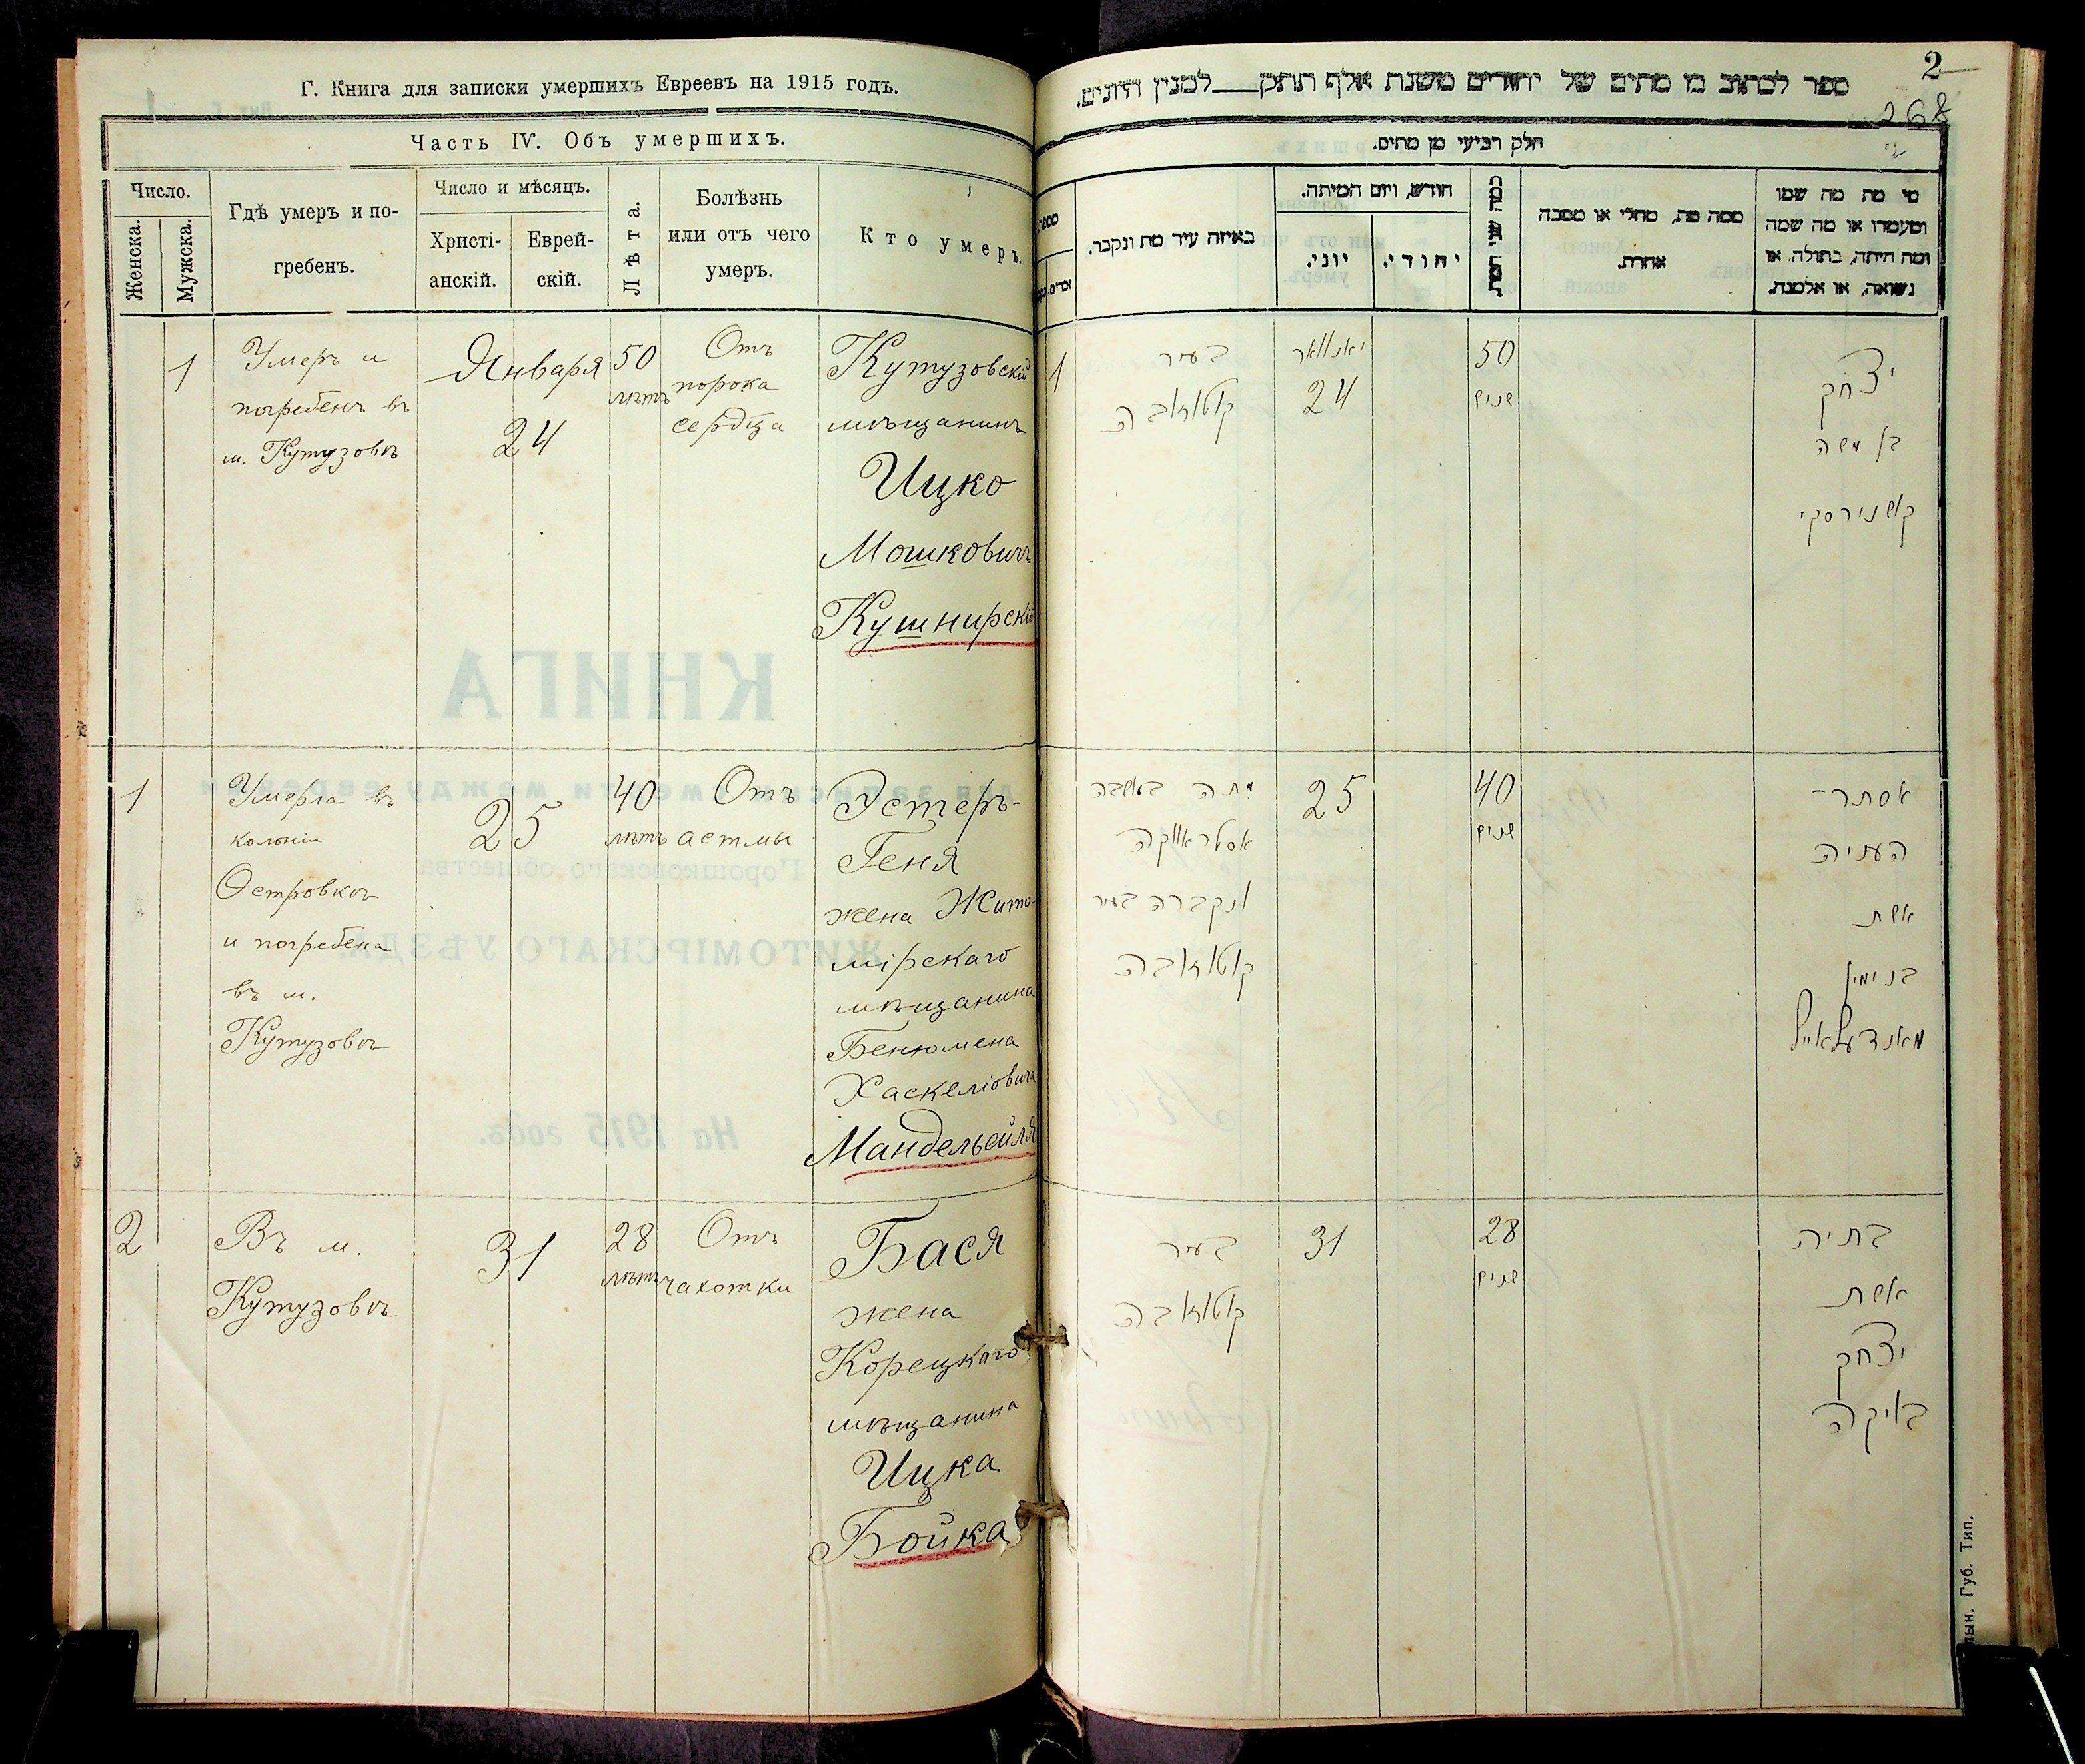 Г. Книга для записки умершихъ Евреевъ на 1915 годъ.
Часть IV. Объ умершихъ.
Число.
Женска.
Мужска.
Гдѣ умеръ и по-
гребенъ.
Число и мѣсяцъ.
Христі-
анскій.
Еврей-
скій.
Лѣта.
Болѣзнь
или отъ чего
умеръ.
Кто умеръ.
1
Умеръ и
погребенъ въ
м. Кутузовѣ
Января
24
50
лѣтъ
Отъ
порока
сердца
Кутузовскій
мѣщанинъ
Ицко
Мошковичъ
Кушнирскій
1
Умерла въ
колоніи
Островкѣ
и погребена
въ м.
Кутузовѣ
25
40
лѣтъ
Отъ
астмы
Эстеръ-
Геня
жена Жито-
мірскаго
мѣщанина
Бенюмена
Хаскеліовича
Мандельейля
2
Въ м.
Кутузовѣ
31
28
лѣтъ
Отъ
чахотки
Бася
жена
Корецкаго
мѣщанина
Ицка
Бойка
КНИГА
На 1915 годъ.
2
268
ספר לכתוב בו מתים של יהודים משנת אלף תתק למנין היונים.
חלק רביעי מן מתים.
מי מת מה שמו
ומעמדו או מה שמה
ומה היתה, בתולה, או
נשואה, או אלמנה.
ממה מת, מחלי או מסבה
אחרת.
חודש, ויום המיתה.
יהודי.
יוני.
באיזה עיר מת ונקבר.
יצחק
בן משה
קושנירסקי
50
שנים
יאנואר
24
בעיר
קוטוזובה
1
אסתר-
העניה
אשת
בנימין
מאנדעלאייל
40
שנים
25
מתה במושבה
אסטראווקה
ונקברה בעיר
קוטוזובה
בתיה
אשת
יצחק
בויקה
28
שנים
31
בעיר
קוטוזובה
Губ. Тип.